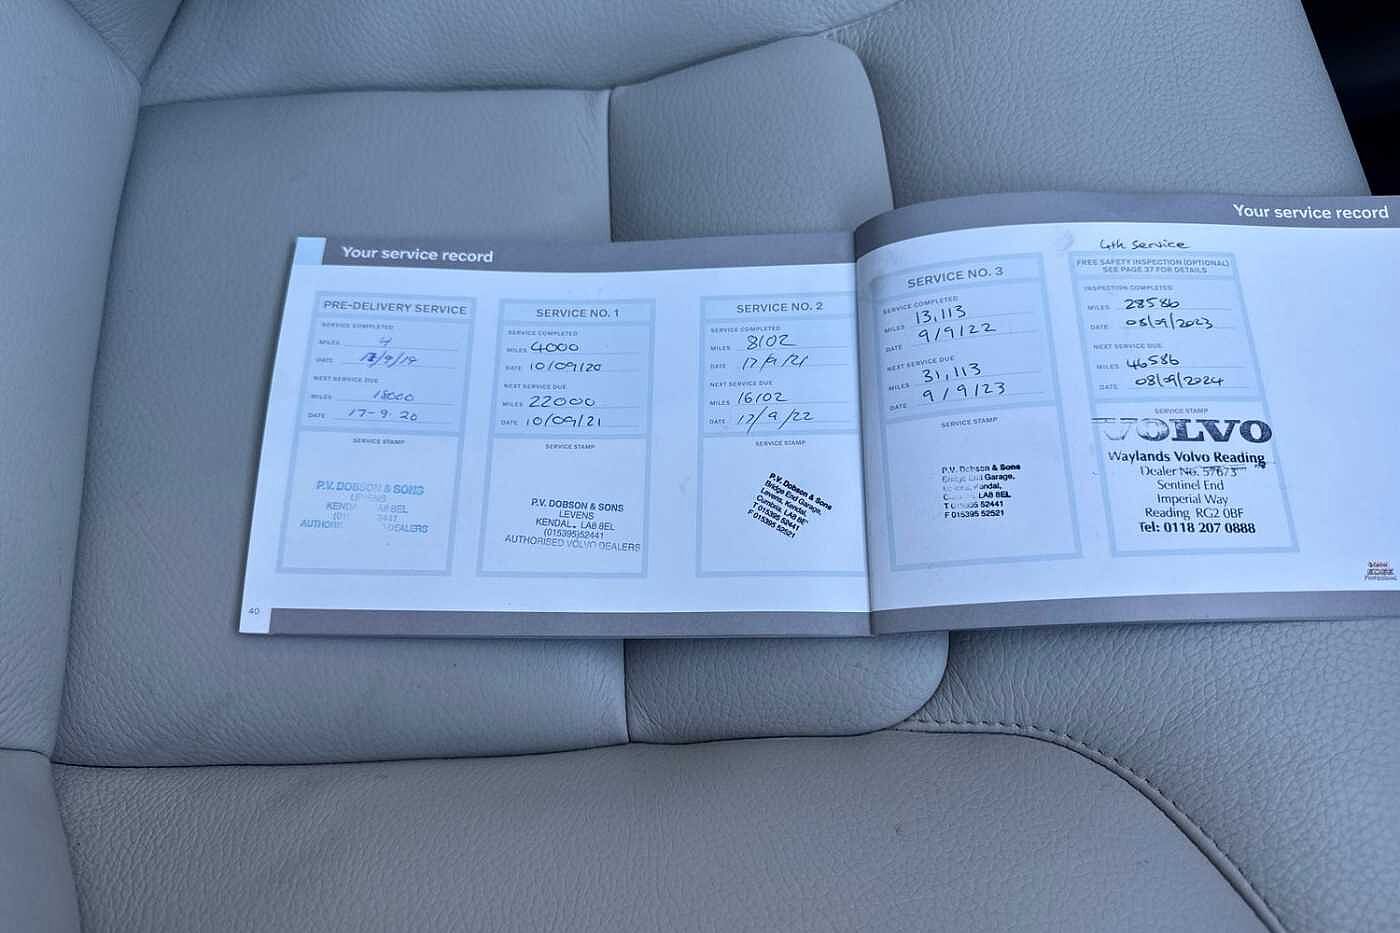 Your service record
PRE-DELIVERY SERVICE
SERVICE COMPLETED
MILES 4
DATE
NEXT SERVICE DUE
MILES 18000
DATE 17-9.20
SERVICE STAMP
P.V. DOBSON & SONS
LEVENS
LA8 8EL
DEALERS
40
SERVICE NO. 1
SERVICE COMPLETED
MILES 4000
DATE 10/09/20
NEXT SERVICE DUE
MILES 22000
DATE 10/09/21
SERVICE STAMP
P.V. DOBSON & SONS
LEVENS
KENDAL. LA8 8EL
(015395)52441
AUTHORISED VOLVO DEALERS
SERVICE NO. 2
SERVICE COMPLETED
MILES 8102
DATE 17/9/21
NEXT SERVICE DUE
MILES 16102
DATE 17/9/22
SERVICE STAMP
P.V. Dobson & Sons
Bridge End Garage,
Levens, Kendal,
Cumbria. LA8 8E
T 015395 52441
F 015395 52521
Your service record
SERVICE NO. 3
SERVICE COMPLETED
MILES 13,113
DATE 9/9/22
NEXT SERVICE DUE
MILES 31,113
DATE 9/9/23
SERVICE STAMP
P.V. Dobson & Sons
Bridge End Garage,
Kendal,
LA8 8EL
T 015395 52441
F 015395 52521
4th Service
FREE SAFETY INSPECTION (OPTIONAL)
SEE PAGE 37 FOR DETAILS
INSPECTION COMPLETED
MILES 28586
DATE 08/09/2023
NEXT SERVICE DUE
MILES 46586
DATE 08/09/2024
SERVICE STAMP
VOLVO
Waylands Volvo Reading
Dealer No. 57673
Sentinel End
Imperial Way
Reading RG2 0BF
Tel: 0118 207 0888
Castrol
EDGE
Professional